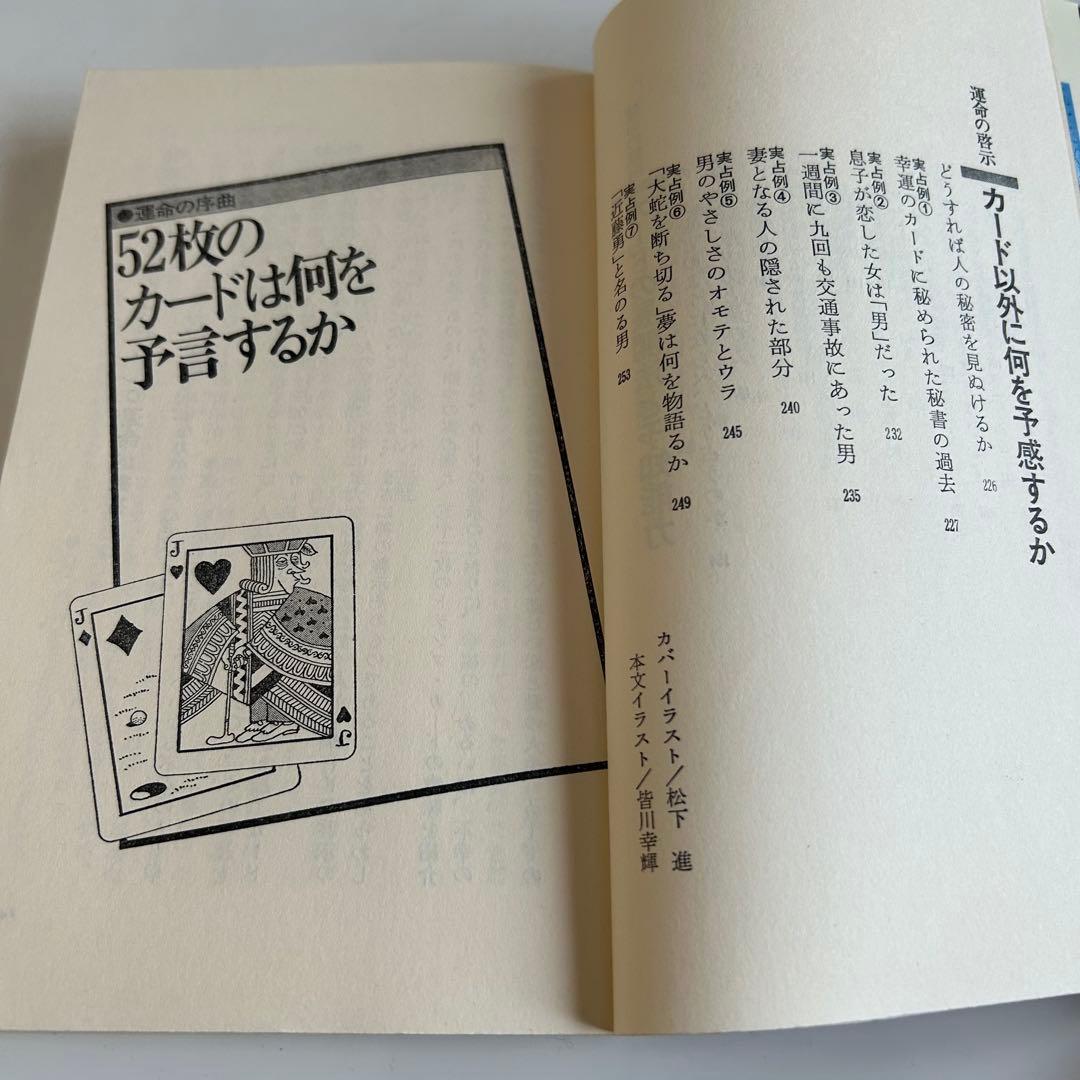 運命の啓示
カード以外に何を予感するか
どうすれば人の秘密を見ぬけるか 226
実占例① 幸運のカードに秘められた秘書の過去 227
実占例② 息子が恋した女は「男」だった 232
実占例③ 一週間に九回も交通事故にあった男 235
実占例④ 妻となる人の隠された部分 240
実占例⑤ 男のやさしさのオモテとウラ 245
実占例⑥ 「大蛇を断ち切る」夢は何を物語るか 249
実占例⑦ 「近藤勇」と名のる男 253
カバーイラスト/松下 進
本文イラスト/皆川幸輝
運命の序曲
52枚の
カードは何を
予言するか
J
J
J